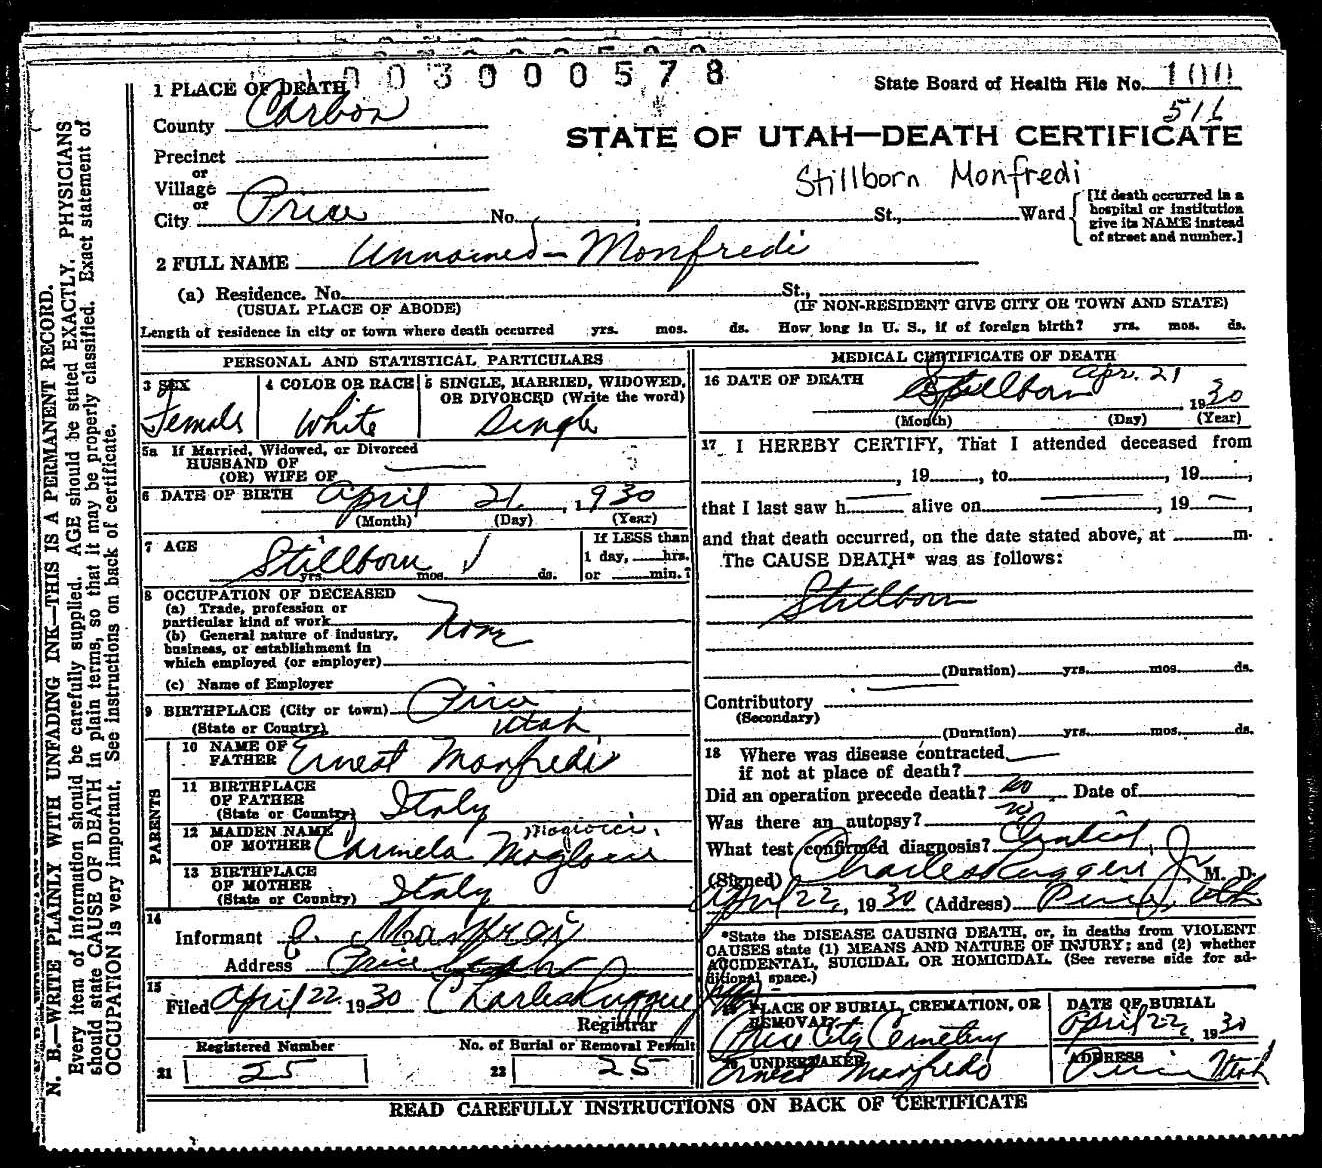 003000578
State Board of Health File No. 100
511
1 PLACE OF DEATH
County Carbon
STATE OF UTAH—DEATH CERTIFICATE
Precinct
or
Village
or
Stillborn Monfredi
City Price No. , St., Ward
[If death occurred in a hospital or institution give its NAME instead of street and number.]
2 FULL NAME Unnamed - Monfredi
(a) Residence. No. St.,
(USUAL PLACE OF ABODE) (IF NON-RESIDENT GIVE CITY OR TOWN AND STATE)
Length of residence in city or town where death occurred yrs. mos. ds. How long in U. S., if of foreign birth? yrs. mos. ds.
PERSONAL AND STATISTICAL PARTICULARS
3 SEX 4 COLOR OR RACE 5 SINGLE, MARRIED, WIDOWED, OR DIVORCED (Write the word)
Female White Single
5a If Married, Widowed, or Divorced
HUSBAND OF
(OR) WIFE OF
6 DATE OF BIRTH April 21, 1930
(Month) (Day) (Year)
7 AGE Stillborn
yrs. mos. ds.
If LESS than
1 day, hrs.
or min.?
8 OCCUPATION OF DECEASED
(a) Trade, profession or
particular kind of work None
(b) General nature of industry,
business, or establishment in
which employed (or employer)
(c) Name of Employer
9 BIRTHPLACE (City or town) Price
(State or Country) Utah
PARENTS
10 NAME OF FATHER Ernest Monfredi
11 BIRTHPLACE OF FATHER (State or Country) Italy
12 MAIDEN NAME OF MOTHER Carmela
13 BIRTHPLACE OF MOTHER (State or Country) Italy
14
Informant
Address Price
15
Filed April 22 1930 Charles Ruggeri
Registrar
Registered Number No. of Burial or Removal Permit
21 25 22 25
MEDICAL CERTIFICATE OF DEATH
16 DATE OF DEATH Stillborn Apr. 21, 1930
(Month) (Day) (Year)
17 I HEREBY CERTIFY, That I attended deceased from
, 19 , to , 19 ,
that I last saw h alive on , 19 ,
and that death occurred, on the date stated above, at m.
The CAUSE DEATH* was as follows:
Stillborn
(Duration) yrs. mos. ds.
Contributory
(Secondary)
(Duration) yrs. mos. ds.
18 Where was disease contracted
if not at place of death?
Did an operation precede death? no Date of
Was there an autopsy? no
What test confirmed diagnosis? Clinical
(Signed) Charles Ruggeri Jr M. D.
April 22, 1930 (Address) Price, Utah
*State the DISEASE CAUSING DEATH, or, in deaths from VIOLENT
CAUSES state (1) MEANS AND NATURE OF INJURY; and (2) whether
ACCIDENTAL, SUICIDAL OR HOMICIDAL. (See reverse side for ad-
ditional space.)
PLACE OF BURIAL, CREMATION, OR REMOVAL DATE OF BURIAL
Price City Cemetery April 22, 1930
UNDERTAKER ADDRESS
Ernest Manfredo Price Utah
READ CAREFULLY INSTRUCTIONS ON BACK OF CERTIFICATE
N. B.—WRITE PLAINLY WITH UNFADING INK—THIS IS A PERMANENT RECORD.
Every item of information should be carefully supplied. AGE should be stated EXACTLY. PHYSICIANS
should state CAUSE OF DEATH in plain terms, so that it may be properly classified. Exact statement of
OCCUPATION is very important. See instructions on back of certificate.